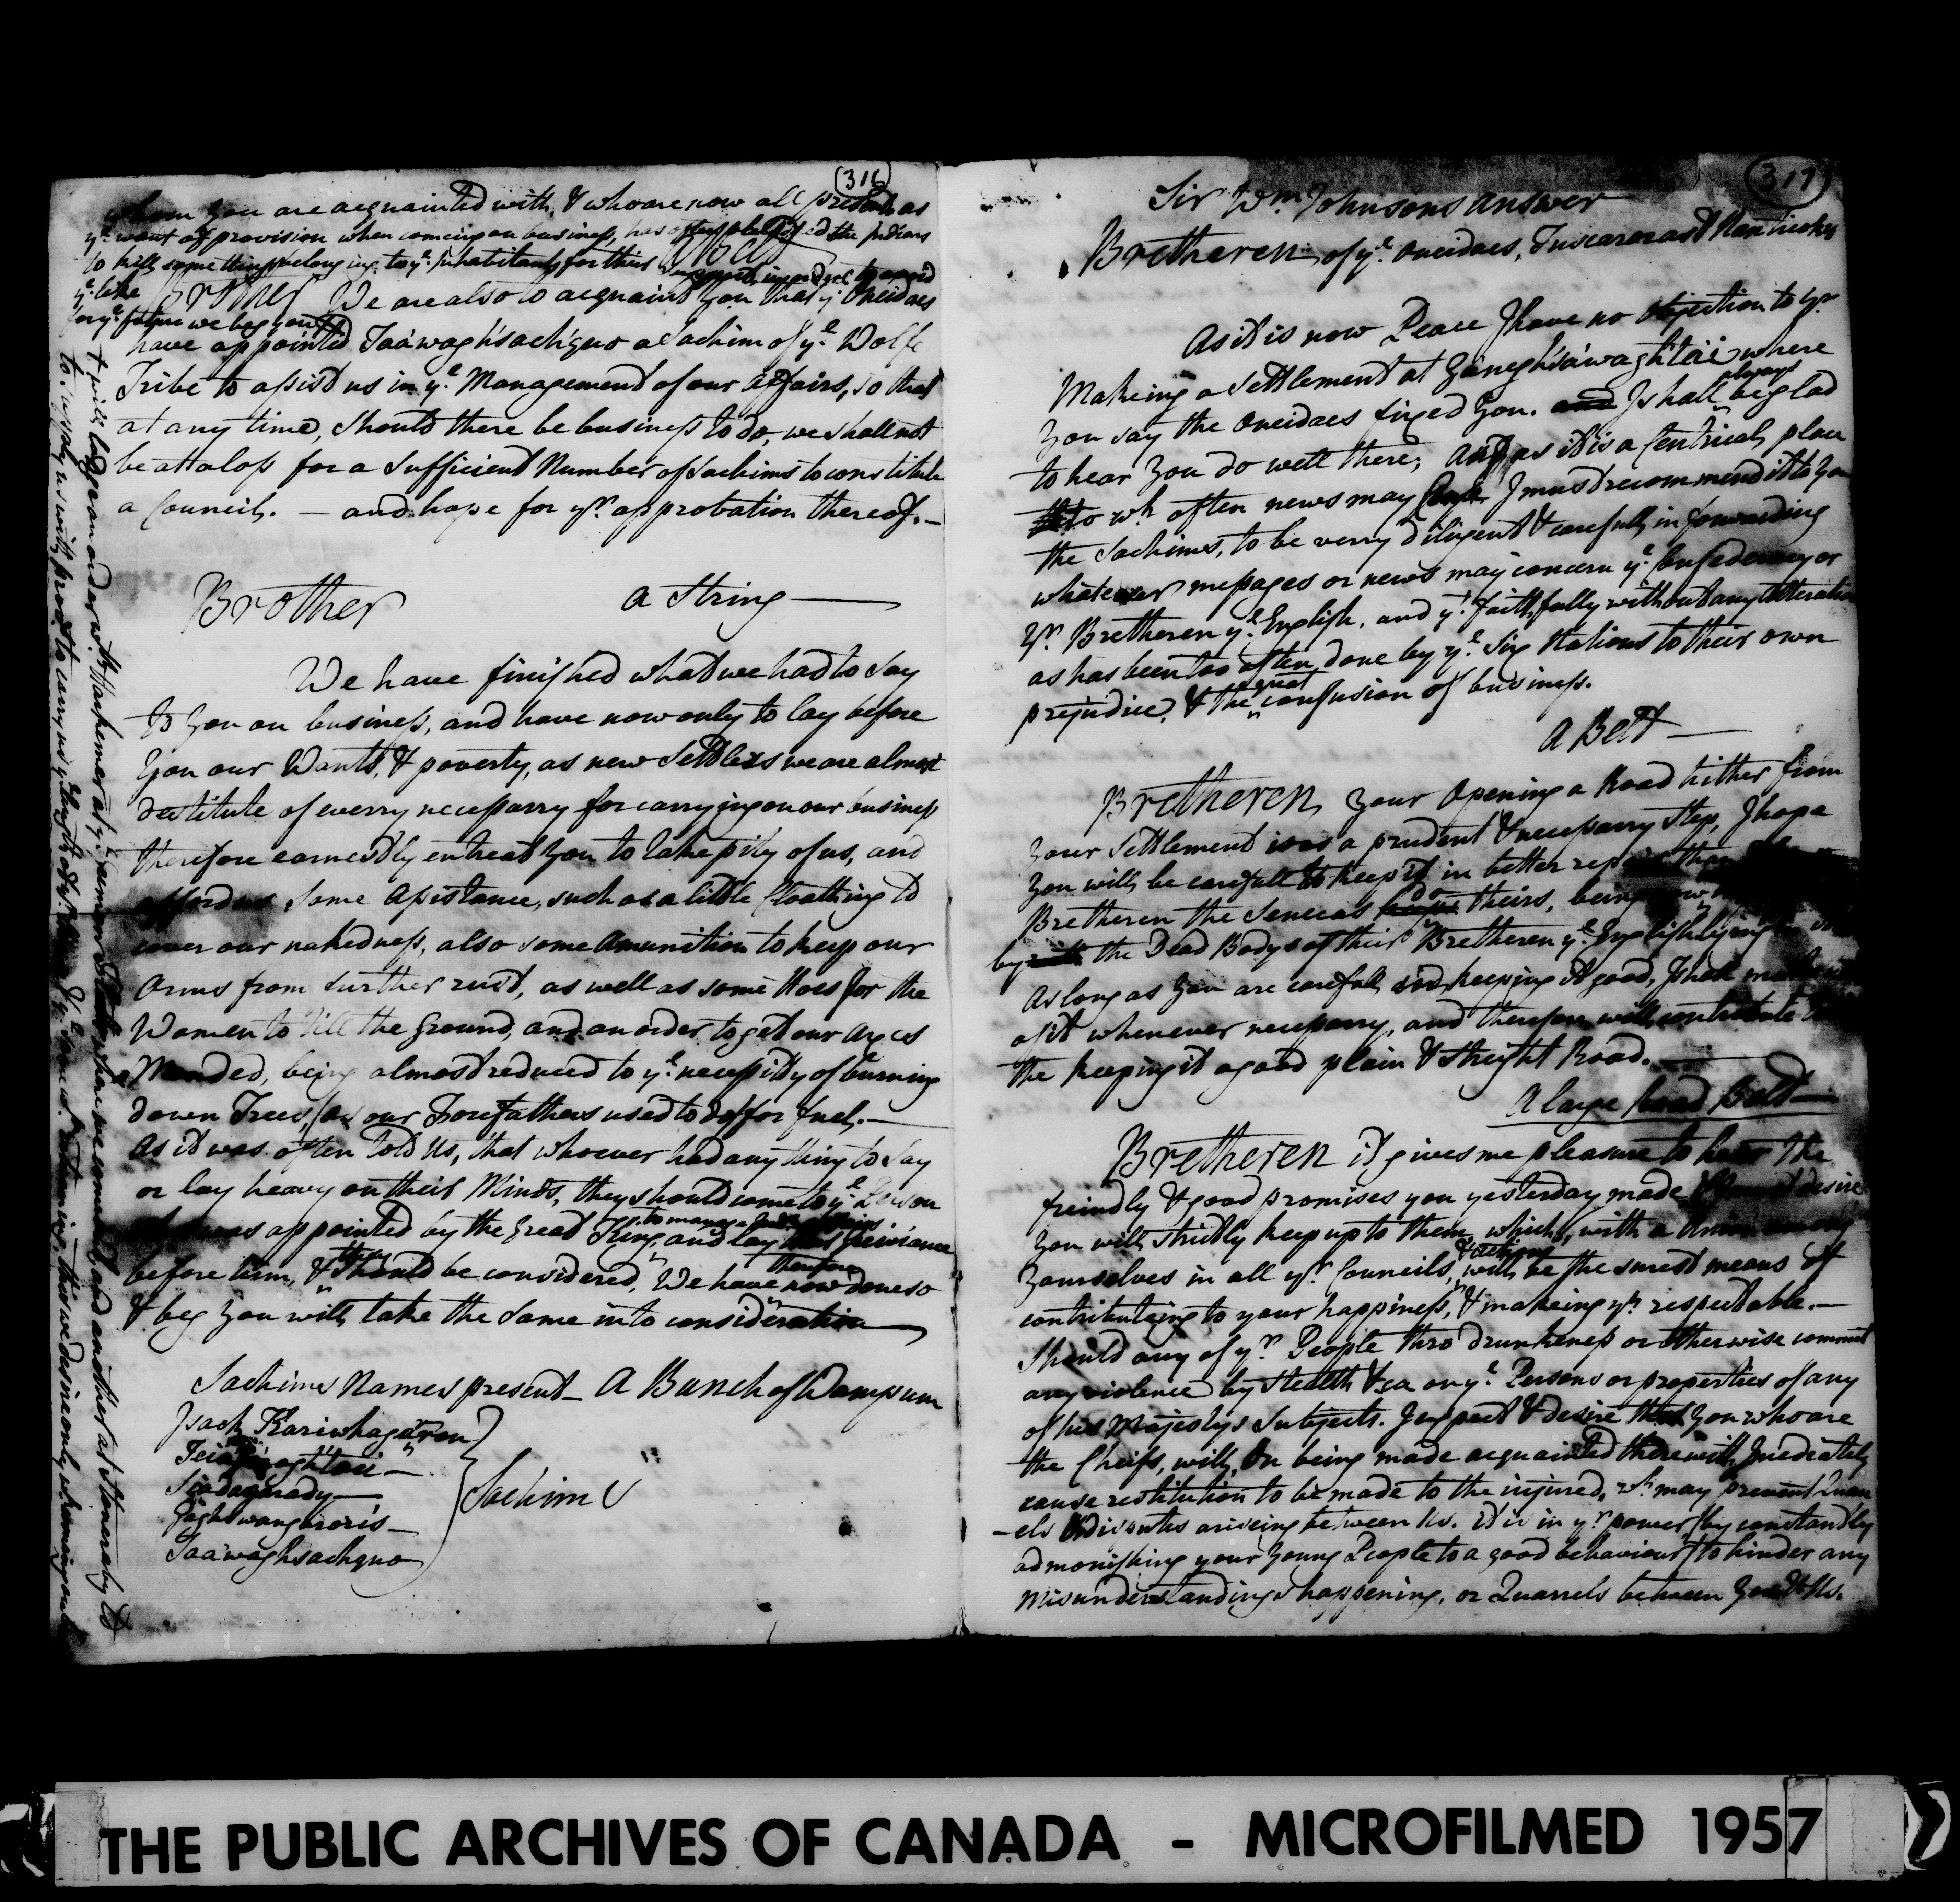 316
whom you are acquainted with, & who are now all present as
ye. want of provision when comeing on business, has often obliged the Indians
to kill something belonging to ye. Inhabitants for their support, in order to avoid
A Belt
ye. like for ye. future we beg you
Brother We are also to acquaint you that ye. Oneidaes
have appointed Taáwaghsachquo a Sachim of ye. Wolfe
Tribe to assist us in ye. Management of our affairs, so that
at any time, should there be business to do, we shall not
be at a loss for a sufficient Number of Sachims to constitute
a Council. — and hope for yr. approbation thereof. —
a String —
Brother
We have finished what we had to say
to you on business, and have now only to lay before
you our Wants, & poverty, as new Settlers we are almost
destitute of everry necessarry for carrying on our business
therefore earnestly entreat you to take pity of us, and
afford us some assistance, such as a little Cloathing to
cover our nakedness, also some Amunition to keep our
Arms from further rust, as well as some Hoes for the
Women to till the Ground, and an order to get our Axes
Mended, being almost reduced to ye. necessity of burning
down Trees, (as our Forefathers used to do) for fuel. —
As it was often told Us, that whoever had any thing to say
or lay heavy on their Minds, they should come to ye. Person
was appointed by the Great King to manage and lay Greivance
before him, & they should be considered, We have therefore now done so
& beg you will take the same into consideration —
Sachims Names present — A Bunch of Wampum
Isack Kariwhagáron
Sadagarady —
Taáwaghsachquo
Sachims
& will lodge an order wth. Harkemer at ye. German Flatts where we come and another at
to supply us with provs. to carry us ye. length of yr. House & ye. same returning, this we desire only when coming on
317
Sir Wm. Johnsons Answer
Bretheren of ye. Oneidaes, Tuscaroras & Nanticokes
As it is now Peace I have no objection to yr.
Makeing a Settlement at Ganeghsáwaghtáii where
you say the Oneidaes fixed you. and I shall always be glad
to hear you do well there; And as it is a Centrical place
to wh. often news may I must recommend it to you
the Sachims, to be verry diligent & carefull in forwarding
whatever messages or news may concern ye. Confederacy or
yr. Bretheren ye. English, and yt. faithfully without any Alteration
as has been too often done by ye. Six Nations to their own
prejudice, & the great confusion of business.
A Belt —
Bretheren your Opening a Road hither from
your Settlement is a prudent & necessarry step, I hope
you will be carefull to keep it in better repair than
Bretheren the Senecas do theirs, being now
by the Dead Bodys of their Bretheren ye. English lying
As long as you are carefull keeping it good, I shall make use
of it whenever necessarry, and therefore will contribute to
the keeping it a good plain & streight Road. —
A large Road Belt —
Bretheren it gives me pleasure to hear the
freindly & good promises you yesterday made desire
you will strictly keep up to them, which, with a Union among
yourselves in all yr. Councils, & actions will be the surest means of
contributeing to your happiness, & makeing yu. respectable. —
Should any of yr. People thro drunkeness or otherwise commit
any violence by Stealth &ca on ye. Persons or properties of any
of his Majestys Subjects. I expect & desire that you who are
the Cheifs, will, On being made acquainted therewith Imediately
cause restitution to be made to the injured, wh. may prevent Quar
-els & disputes ariseing between Us. it is in yr. power (by constantly
admonishing your Young People to a good behaviour) to hinder any
Misunderstandings happening, or Quarrels between you & Us.
THE PUBLIC ARCHIVES OF CANADA - MICROFILMED 1957